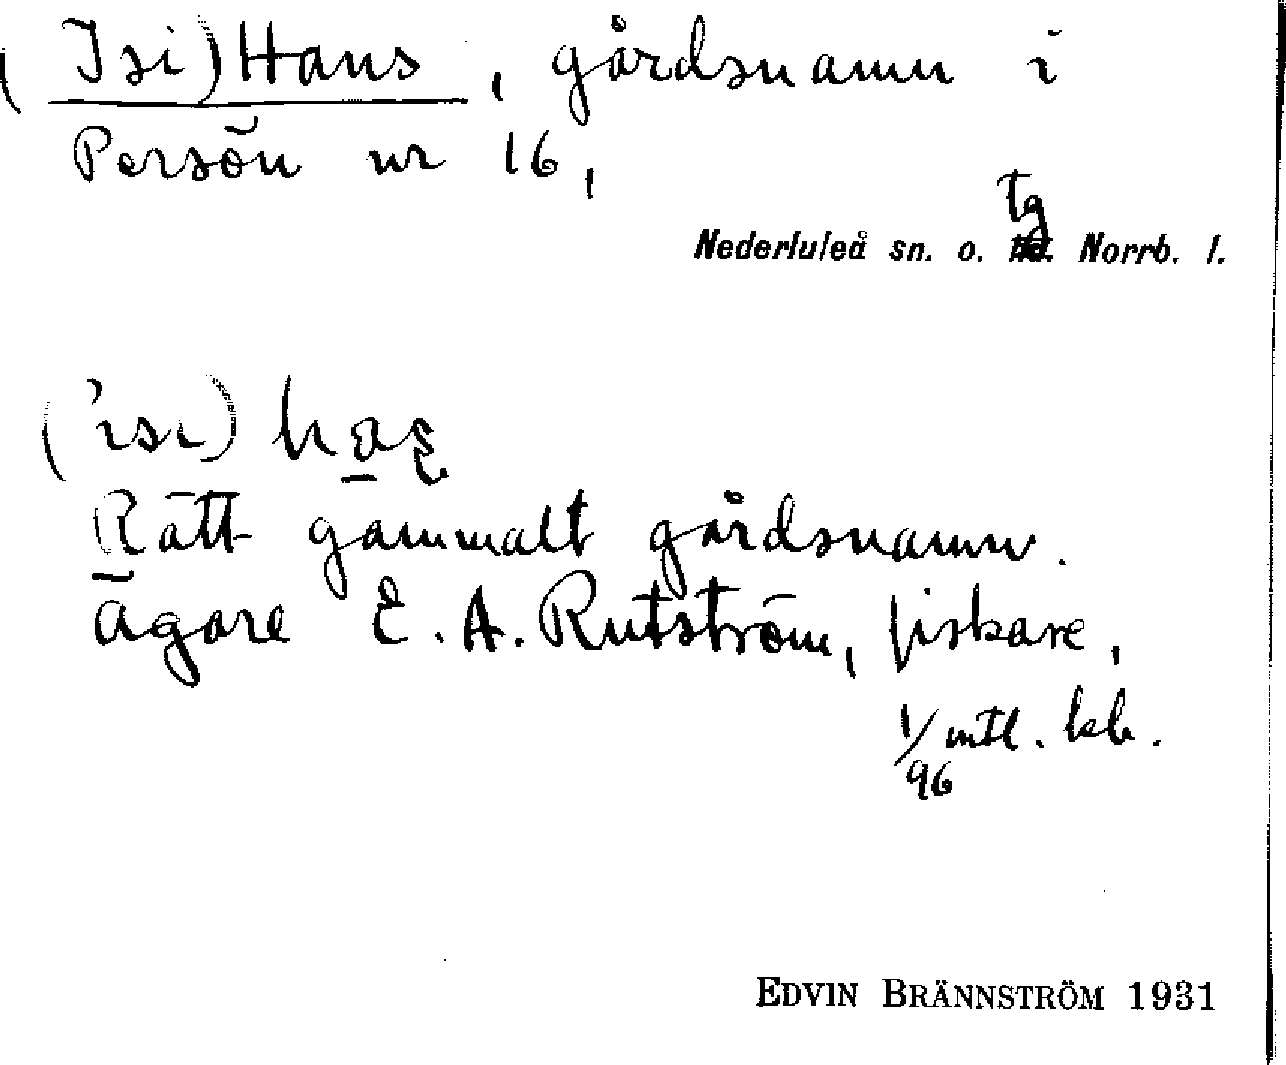 (Isi)Hans, gårdsnamn i
Persön nr 16,
tg
Nederluleå sn. o. Norrb. l.
('ısı) ha̲ʂ
Rätt gammalt gårdsnamn.
ägare E. A. Rutström, fiskare,
1/96 mtl. kb.
EDVIN BRÄNNSTRÖM 1931